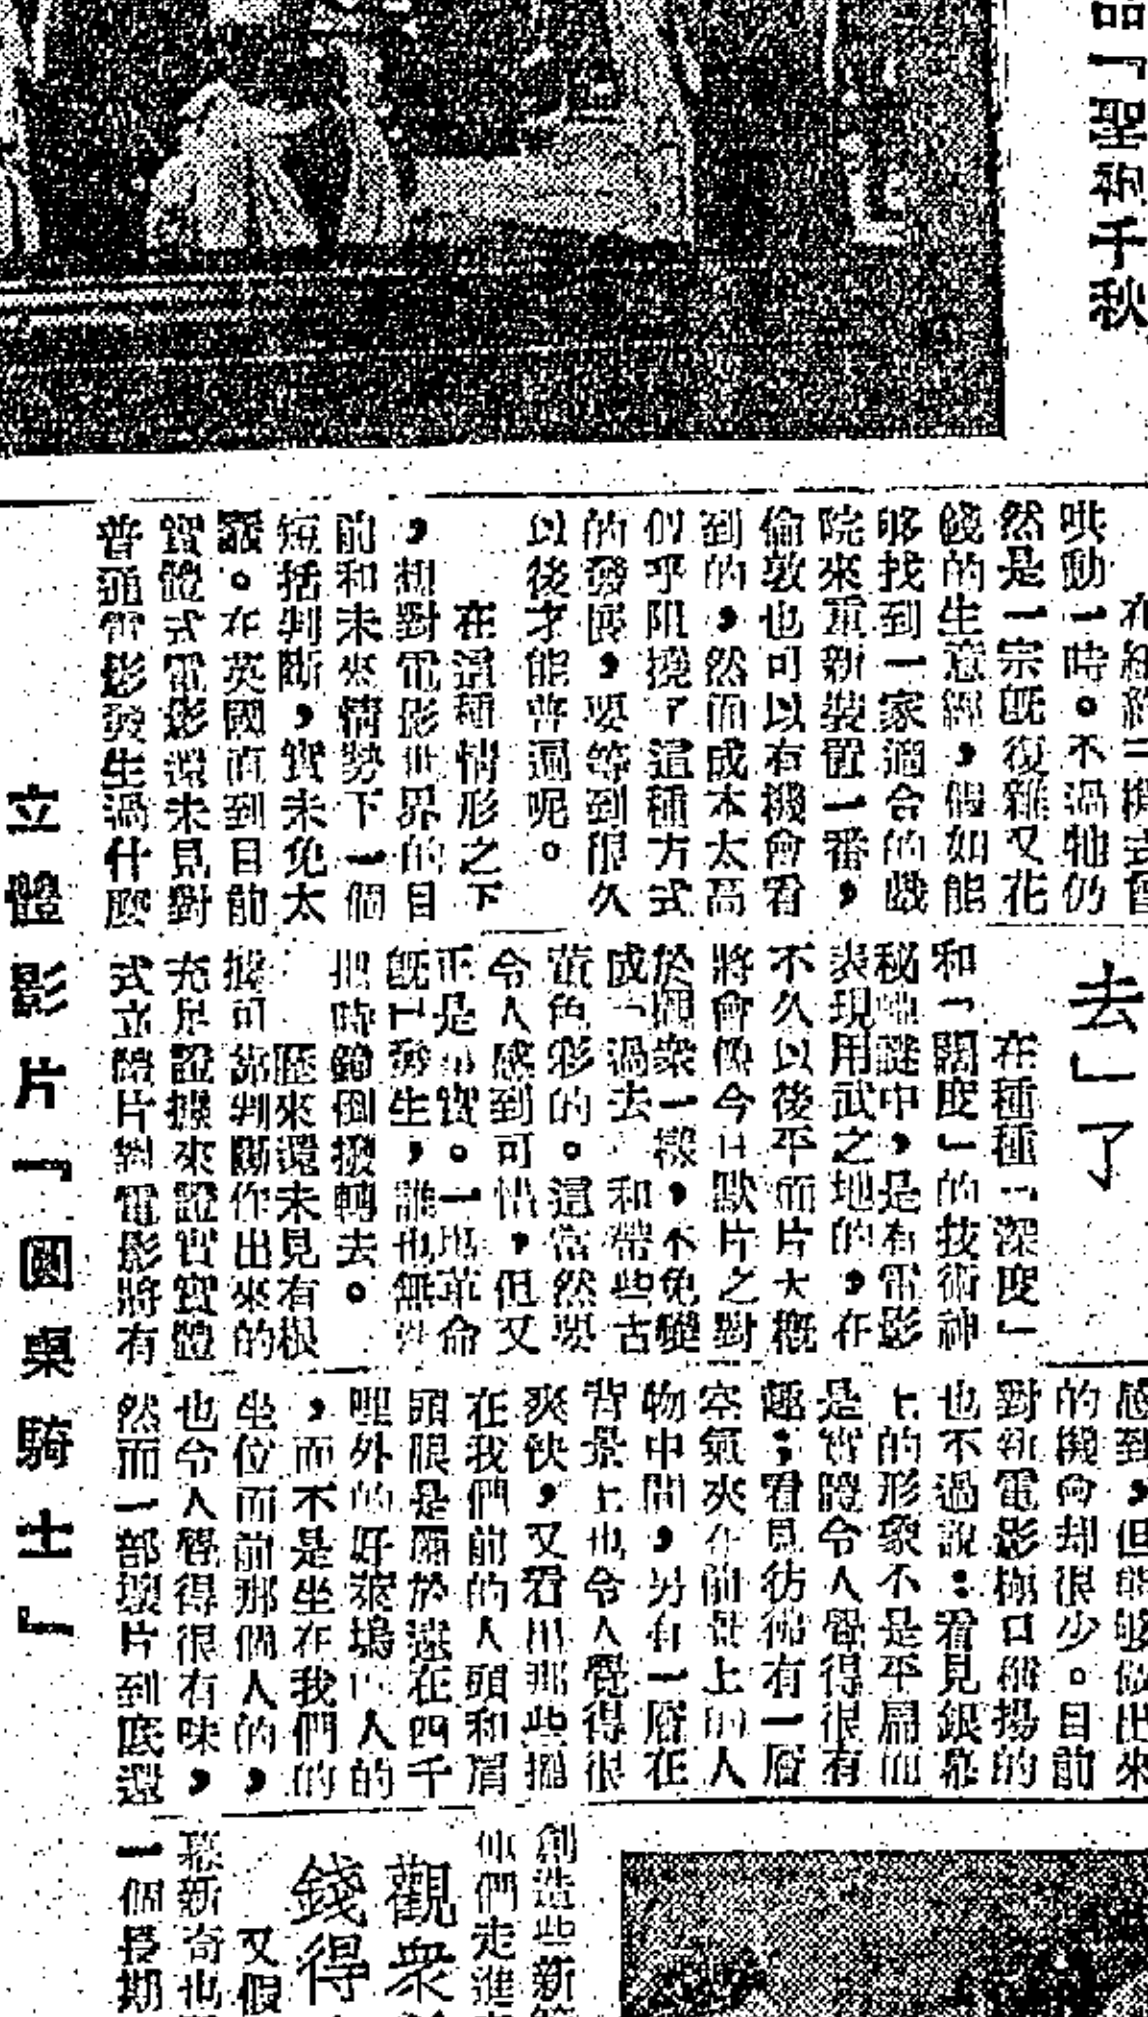 品『聖袍千秋
哄動一時。不過牠仍
然是一宗既復雜又花
錢的生意經，假如能
够找到一家適合的戲
院來重新裝置一番，
倫敦也可以有機會看
到的，然而成本太高
似乎阻撓了這種方式
的發展，要等到很久
以後才能普遍呢。
在這種情形之下
，想對電影世界的目
前和未來情勢下一個
短括判斷，實未免太
嚴。在英國直到目前
實體式電影還未見對
普通電影發生過什麼
立體影片『圓桌騎士』
去」了
在種種「深度」
和「闊度」的技術神
秘謎中，是有電影
表現用武之地的，在
不久以後平面片大概
將會像今日默片之對
於觀衆一樣，不免變
成「過去」和帶些古
董色彩的。這當然要
令人感到可惜，但又
正是事實。一場革命
既已發生，誰也無
把時鐘倒撥轉去。
歷來還未見有根
據可靠判斷作出來的
充足證據來證實實體
式立體片對電影將有
感到，但能够做出來
的機會却很少。目前
對新電影極口稱揚的
也不過說：看見銀幕
上的形象不是平扁而
是實體令人覺得很有
趣；看見彷彿有一層
空氣夾在前景上的人
物中間，另有一層在
背景上也令人覺得很
爽快，又看出那些擋
在我們前的人頭和肩
頭眼是屬於遠在四千
哩外的好萊塢人的
，而不是坐在我們的
坐位面前那個人的，
也令人覺得很有味，
然而一部壞片到底還
創造些新
他們走進
觀衆
錢得
又假
新奇也
一個長期